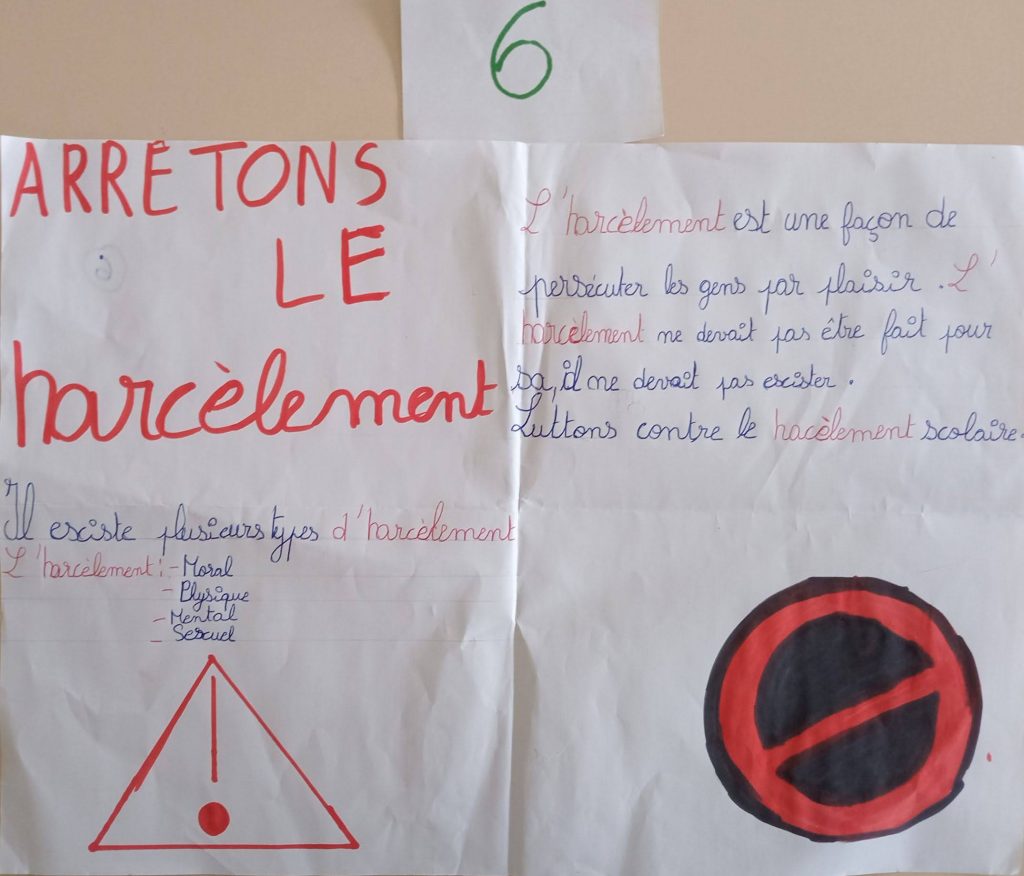 6
ARRÊTONS
LE
harcèlement
Il esciste plusieurs types d'harcèlement
L'harcèlement : - Moral
- Physique
- Mental
- Sescuel
L'harcèlement est une façon de
persécuter les gens par plaisir. L'
harcèlement ne devait pas être fait pour
sa, il ne devait pas escister.
Luttons contre le hacèlement scolaire.